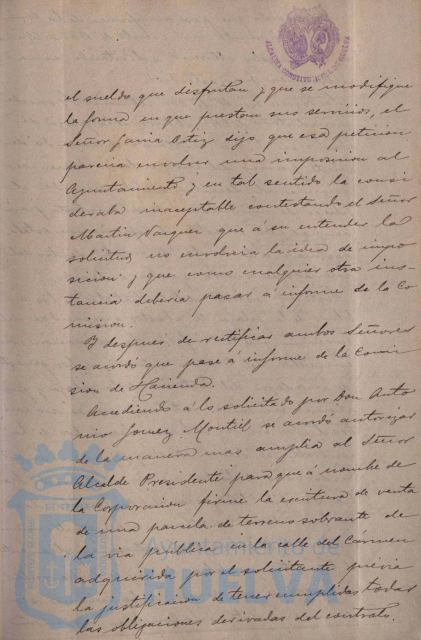 ALCALDIA CONSTITUCIONAL HUELVA
el sueldo que disfrutan y que se modifique
la forma en que prestan sus servicios, el
Señor Garcia Ortiz dijo que esa peticion
parecia envolver una imposicion al
Ayuntamiento y en tal sentido la consi
deraba inaceptable contestando el Señor
Martin Vazquez que á su entender la
solicitud no envolvia la idea de impo
sicion y que como cualquier otra ins-
tancia deberia pasar á informe de la Co
mision.
Y despues de rectificar ambos Señores
se acordó que pase á informe de la Comi
sion de Hacienda.
Accediendo á lo solicitado por Don Anto
nio Gomez Montiel se acordó autorizar
de la manera mas amplia al Señor
Alcalde Presidente para que á nombre de
la Corporacion firme la escritura de venta
de una parcela de terreno sobrante de
la via publica en la calle del Carmen
adquerida por el solicitante previa
la justificacion de tener cumplidas todas
las obligaciones derivadas del contrato.
Ayuntamiento de
HUELVA